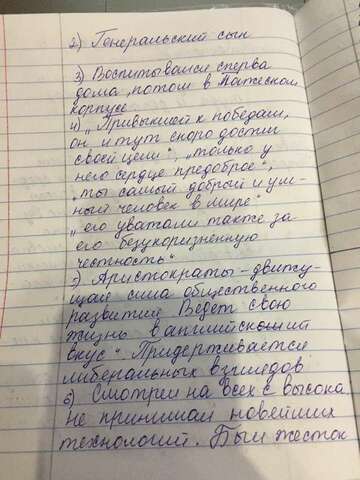 2) Генеральский сын
3) Воспитывался сперва
дома, потом в Пажеском
корпусе
4) „Привыкший к победам,
он и тут скоро достиг
своей цели", „только у
него сердце предоброе",
„ты самый добрый и ум-
ный человек в мире"
„его уважали также за
его безукоризненную
честность"
5) Аристократы - движу-
щая сила общественного
развития Ведет свою
жизнь в английский
вкус" Придерживается
либеральных взглядов
6) Смотрел на всех с высока
не принимал новейших
технологий. Был жесток